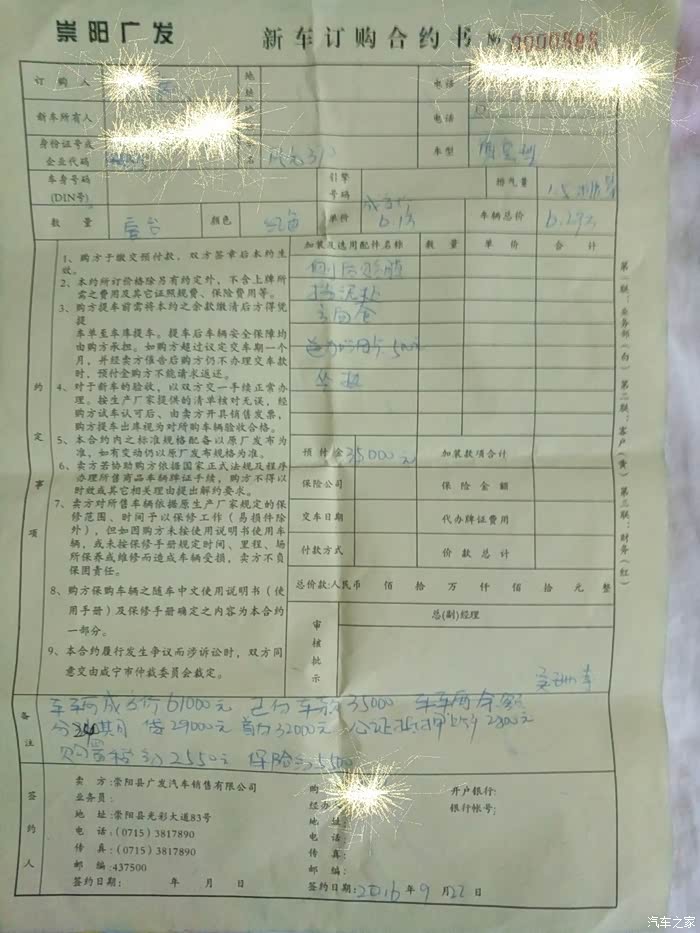 崇阳广发 新车订购合约书 № 0000585
订购人 地址 电话
新车所有人 地址 电话
身份证号或企业代码 车型
车身号码(DIN号) 引擎号码 排气量
数量 壹台 颜色 红色 单价 成交价 6.1万 车辆总价 6.29万
约定事项
1、购方于缴交预付款，双方签章后本约生效。
2、本约所订价格除另有约定外，不含上牌所需之费用及其它证照规费、保险费用等。
3、购方提车前需将本约之余款缴清后方得凭提车单至车库提车。提车后车辆安全保障均由购方承担。如购方超过议定交车期一个月，并经卖方催告后购方仍不办理交车款时，预付金购方不能请求返还。
4、对于新车的验收，以双方交一手续正常办理。按生产厂家提供的清单核对无误，经购方试车认可后、由卖方开具销售发票，购方提车出库视为对所购车辆验收合格。
5、本合约内之标准规格配备以原厂发布为准，如有变动仍以原厂发布规格为准。
6、卖方若协助购方依据国家正式法规及程序办理所售商品车辆牌证手续，购方不得以时效或其它相关理由提出解约要求。
7、卖方对所售车辆依据原生产厂家规定的保修范围、时间予以保修工作（易损件除外），但如因购方未按使用说明书使用车辆，或未按保修手册规定时间、里程、场所保养或维修而造成车辆受损，卖方不负保固责任。
8、购方保购车辆之随车中文使用说明书（使用手册）及保修手册确定之内容为本合约一部分。
9、本合约履行发生争议而涉诉讼时，双方同意交由咸宁市仲裁委员会裁定。
加装及选用配件名称 数量 单价 合计
挡泥板
方向套
坐垫
预付金 35000元 加装款项合计
保险公司 保险金额
交车日期 代办牌证费用
付款方式 价款总计
总价款:人民币 佰 拾 万 仟 佰 拾 元 整
审核批示 总(副)经理
第一联：业务部（白） 第二联：客户（黄） 第三联：财务（红）
备注
车辆成交价61000元 已付车款35000 车辆余额
分 期 贷29000元 首付32000元 公证抵押上牌2800元
购置税约2550元 保险约5500
签约人
卖 方:崇阳县广发汽车销售有限公司
业务员:
地 址:崇阳县光彩大道83号
电 话:(0715)3817890
传 真:(0715)3817890
邮 编:437500
签约日期: 年 月 日
购
经办
地 址:
电 话:
传 真:
邮 编:
签约日期:2016年9月22日
开户银行:
银行帐号:
汽车之家